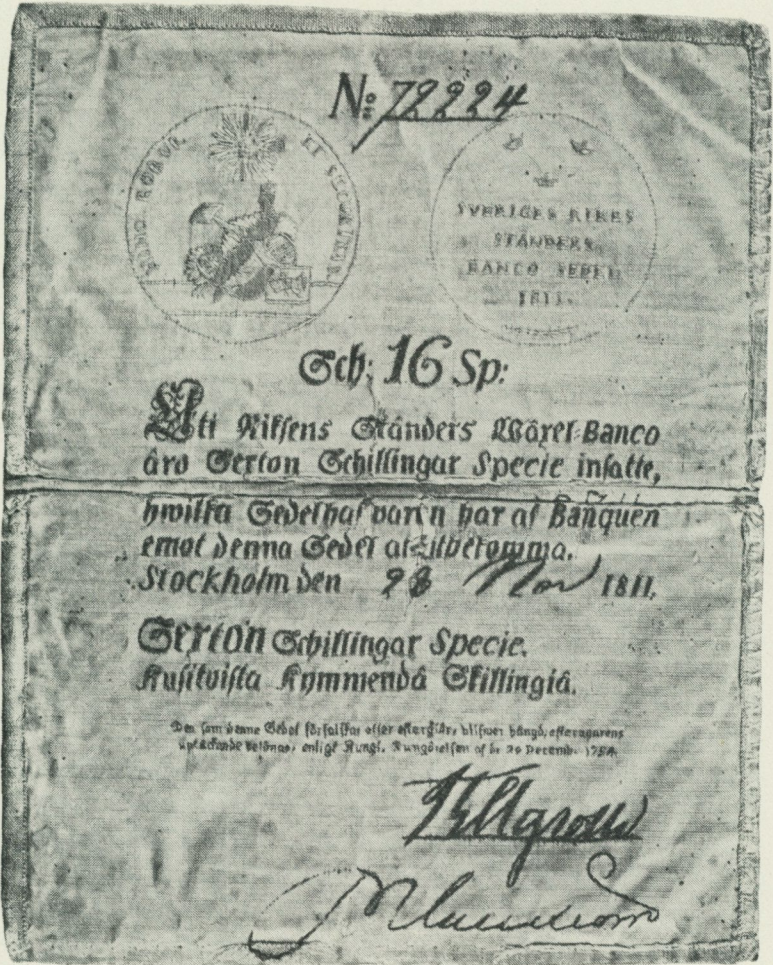 No: 72224
HINC ROBUR ET SECURITAS
SVERIGES RIKES
STÄNDERS
BANCO SEDEL
1811.
Sch: 16 Sp:
Uti Riksens Ständers Wäxel-Banco
äro Sexton Schillingar Specie insatte,
hwilka Sedelhafvaren har af Banquen
emot denna Sedel at utbekomma.
Stockholm den 28 Nov 1811.
Sexton Schillingar Specie.
Kusitoista Kymmendä Skillingiä.
Den som denne Sedel förfalskar eller eftergiör, blifwer hängd, efteragarens
uptäckande belönas, enligt Kungl. Kungörelsen af de 20 Decemb. 1754.